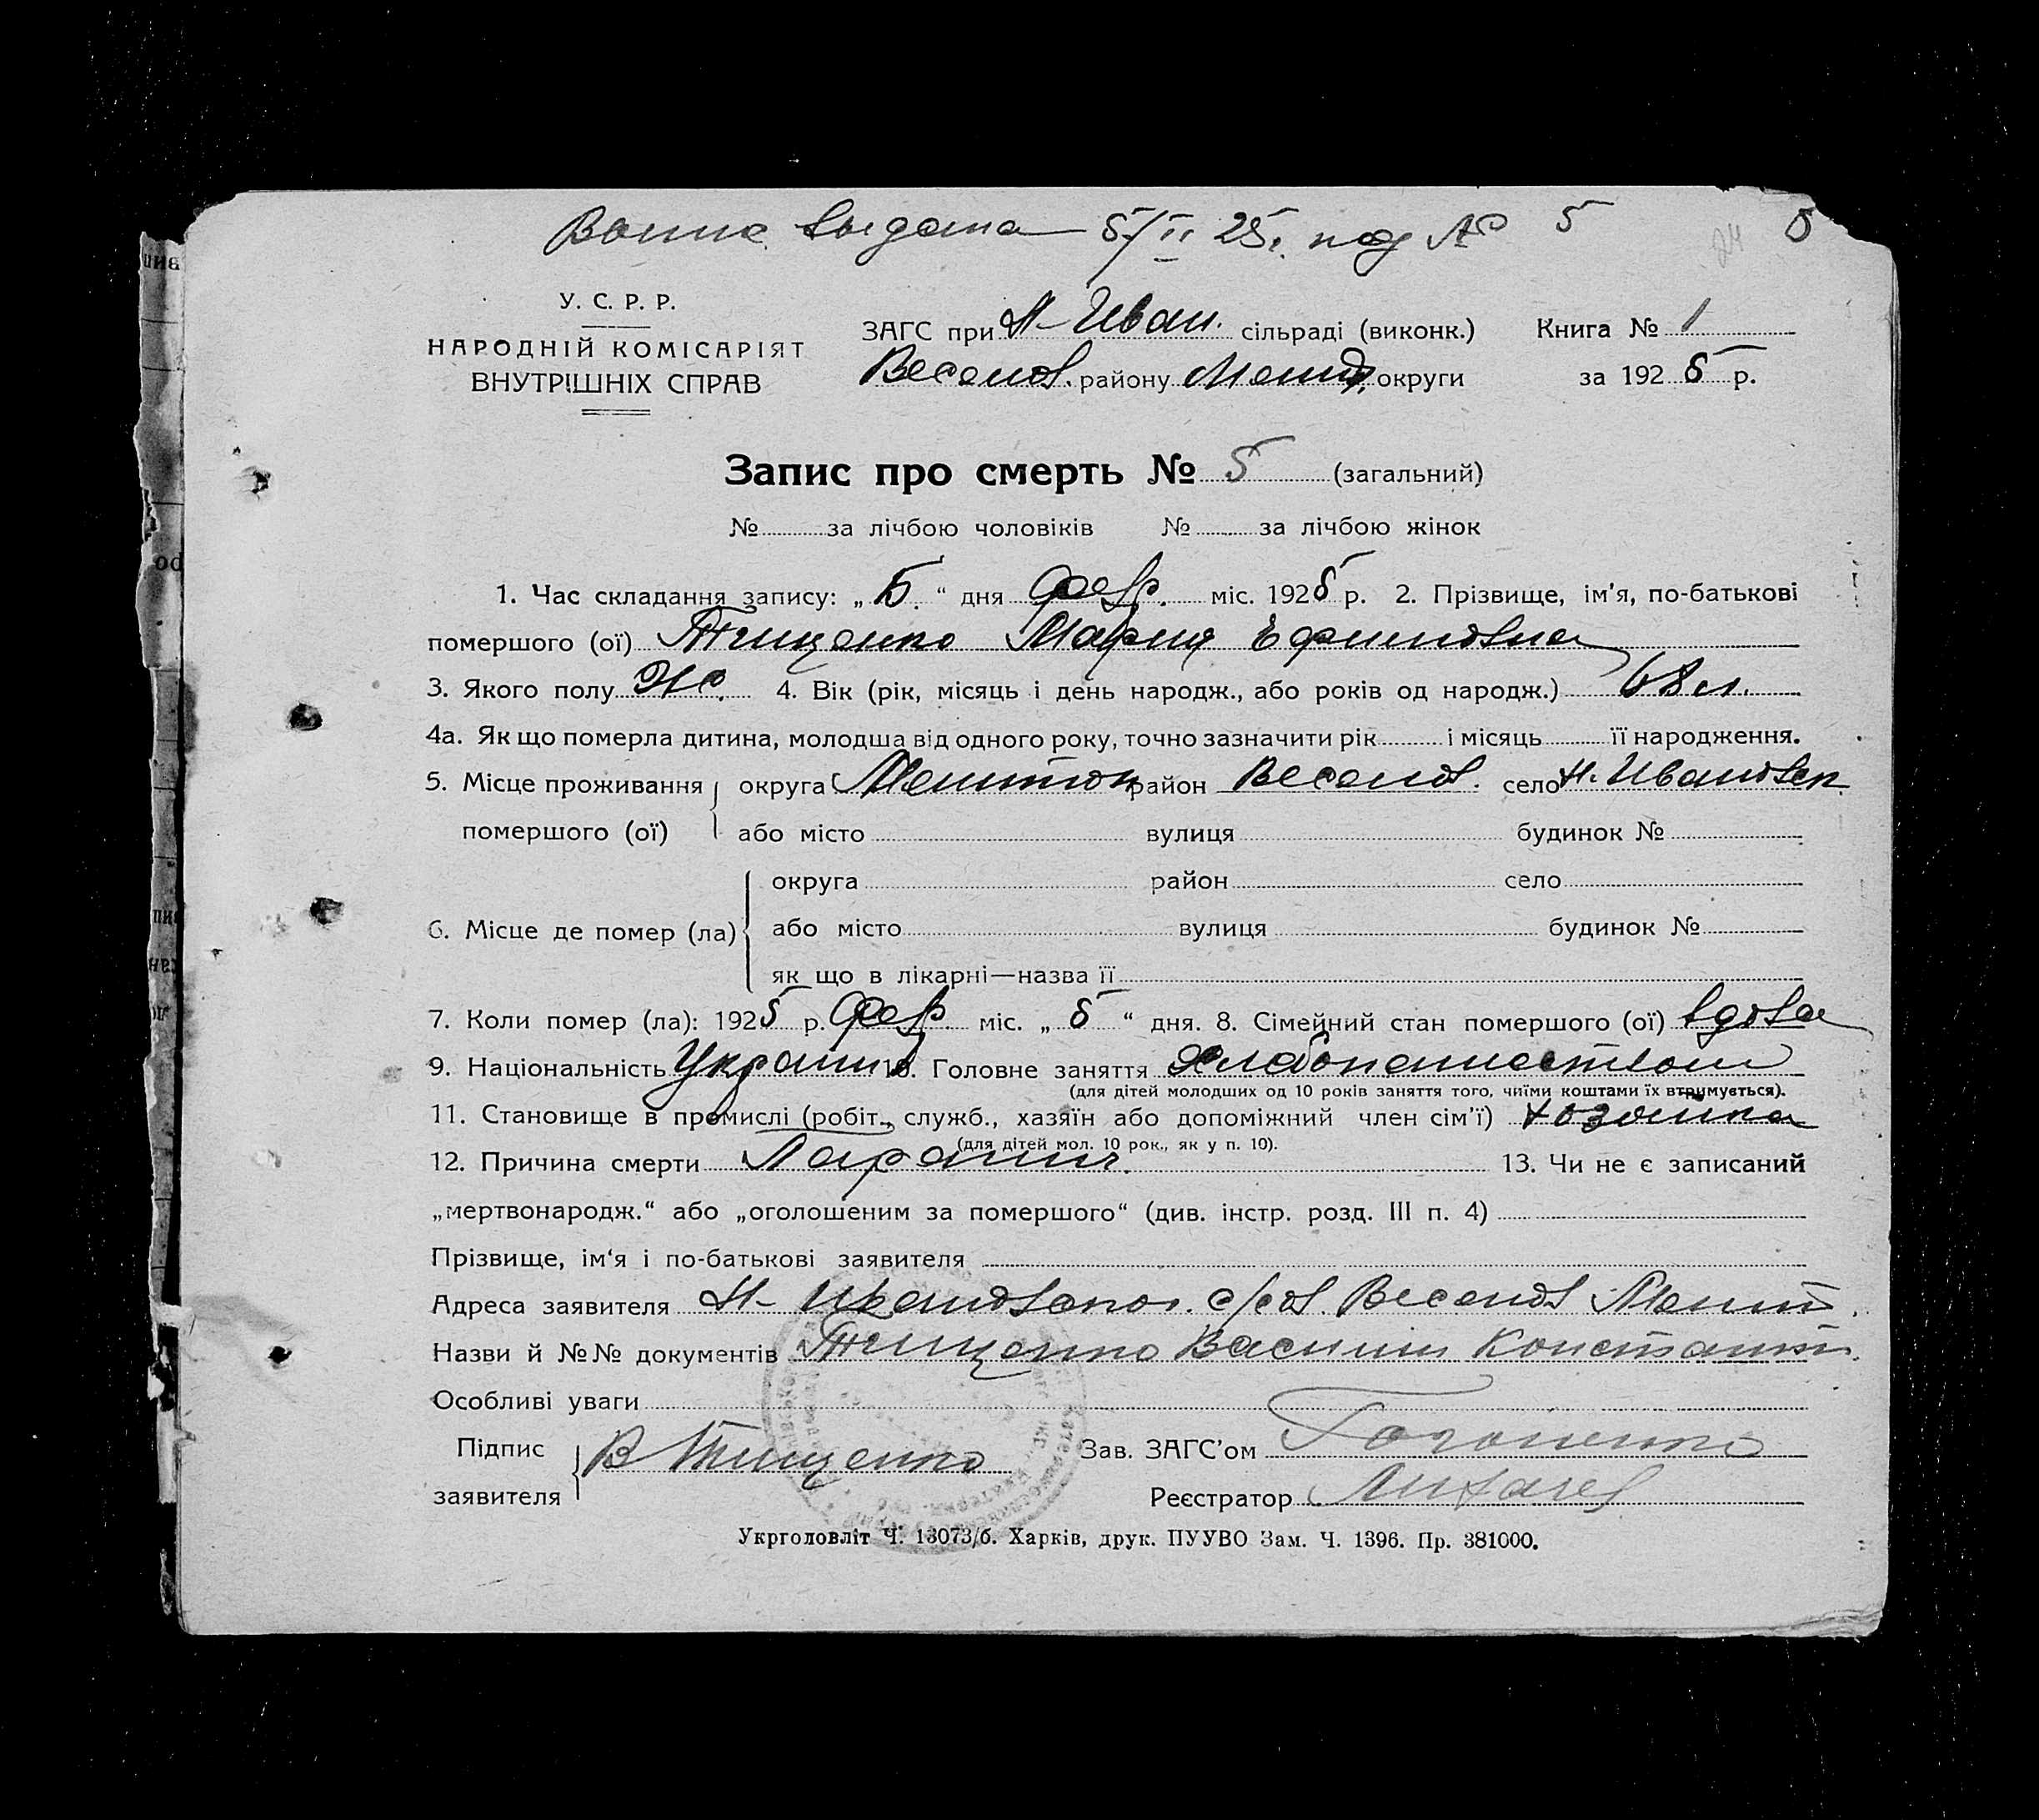 выдана 5/II 25г. под № 5 5
24
У. С. Р. Р.
НАРОДНІЙ КОМІСАРІЯТ
ВНУТРІШНІХ СПРАВ
ЗАГС при Н-Иван. сільраді (виконк.) Книга № 1
Веселов. району Мелит. округи за 1925 р.
Запис про смерть № 5 (загальний)
№ за лічбою чоловіків № за лічбою жінок
1. Час складання запису: „5.“ дня Февр. міс. 1925 р. 2. Прізвище, ім'я, по-батькові
помершого (ої) Тищенко Мария Ефимовна
3. Якого полу Ж. 4. Вік (рік, місяць і день народж., або років од народж.) 68 л.
4а. Як що померла дитина, молодша від одного року, точно зазначити рік і місяць її народження.
5. Місце проживання округа Мелитоп район Веселов. село Н. Ивановк
помершого (ої) або місто вулиця будинок №
округа район село
6. Місце де помер (ла) або місто вулиця будинок №
як що в лікарні—назва її
7. Коли помер (ла): 1925 р. Февр. міс. „5“ дня. 8. Сімейний стан помершого (ої) вдова
9. Національність Украин 10. Головне заняття Хлебопашеством
(для дітей молодших од 10 років заняття того, чиїми коштами їх втримується).
11. Становище в промислі (робіт., служб., хазяїн або допоміжний член сім'ї) хозяйка
(для дітей мол. 10 рок., як у п. 10).
12. Причина смерти Паралич. 13. Чи не є записаний
„мертвонародж.“ або „оголошеним за помершого“ (див. інстр. розд. III п. 4)
Прізвище, ім'я і по-батькові заявителя
Адреса заявителя Н- Ивановског. с/сов. Веселов Мелит.
Назви й №№ документів Тищенко Василий Константин.
Особливі уваги
Підпис В Тищенко Зав. ЗАГС'ом
заявителя Реєстратор
Укрголовліт Ч. 13073/б. Харків, друк. ПУУВО Зам. Ч. 1396. Пр. 381000.